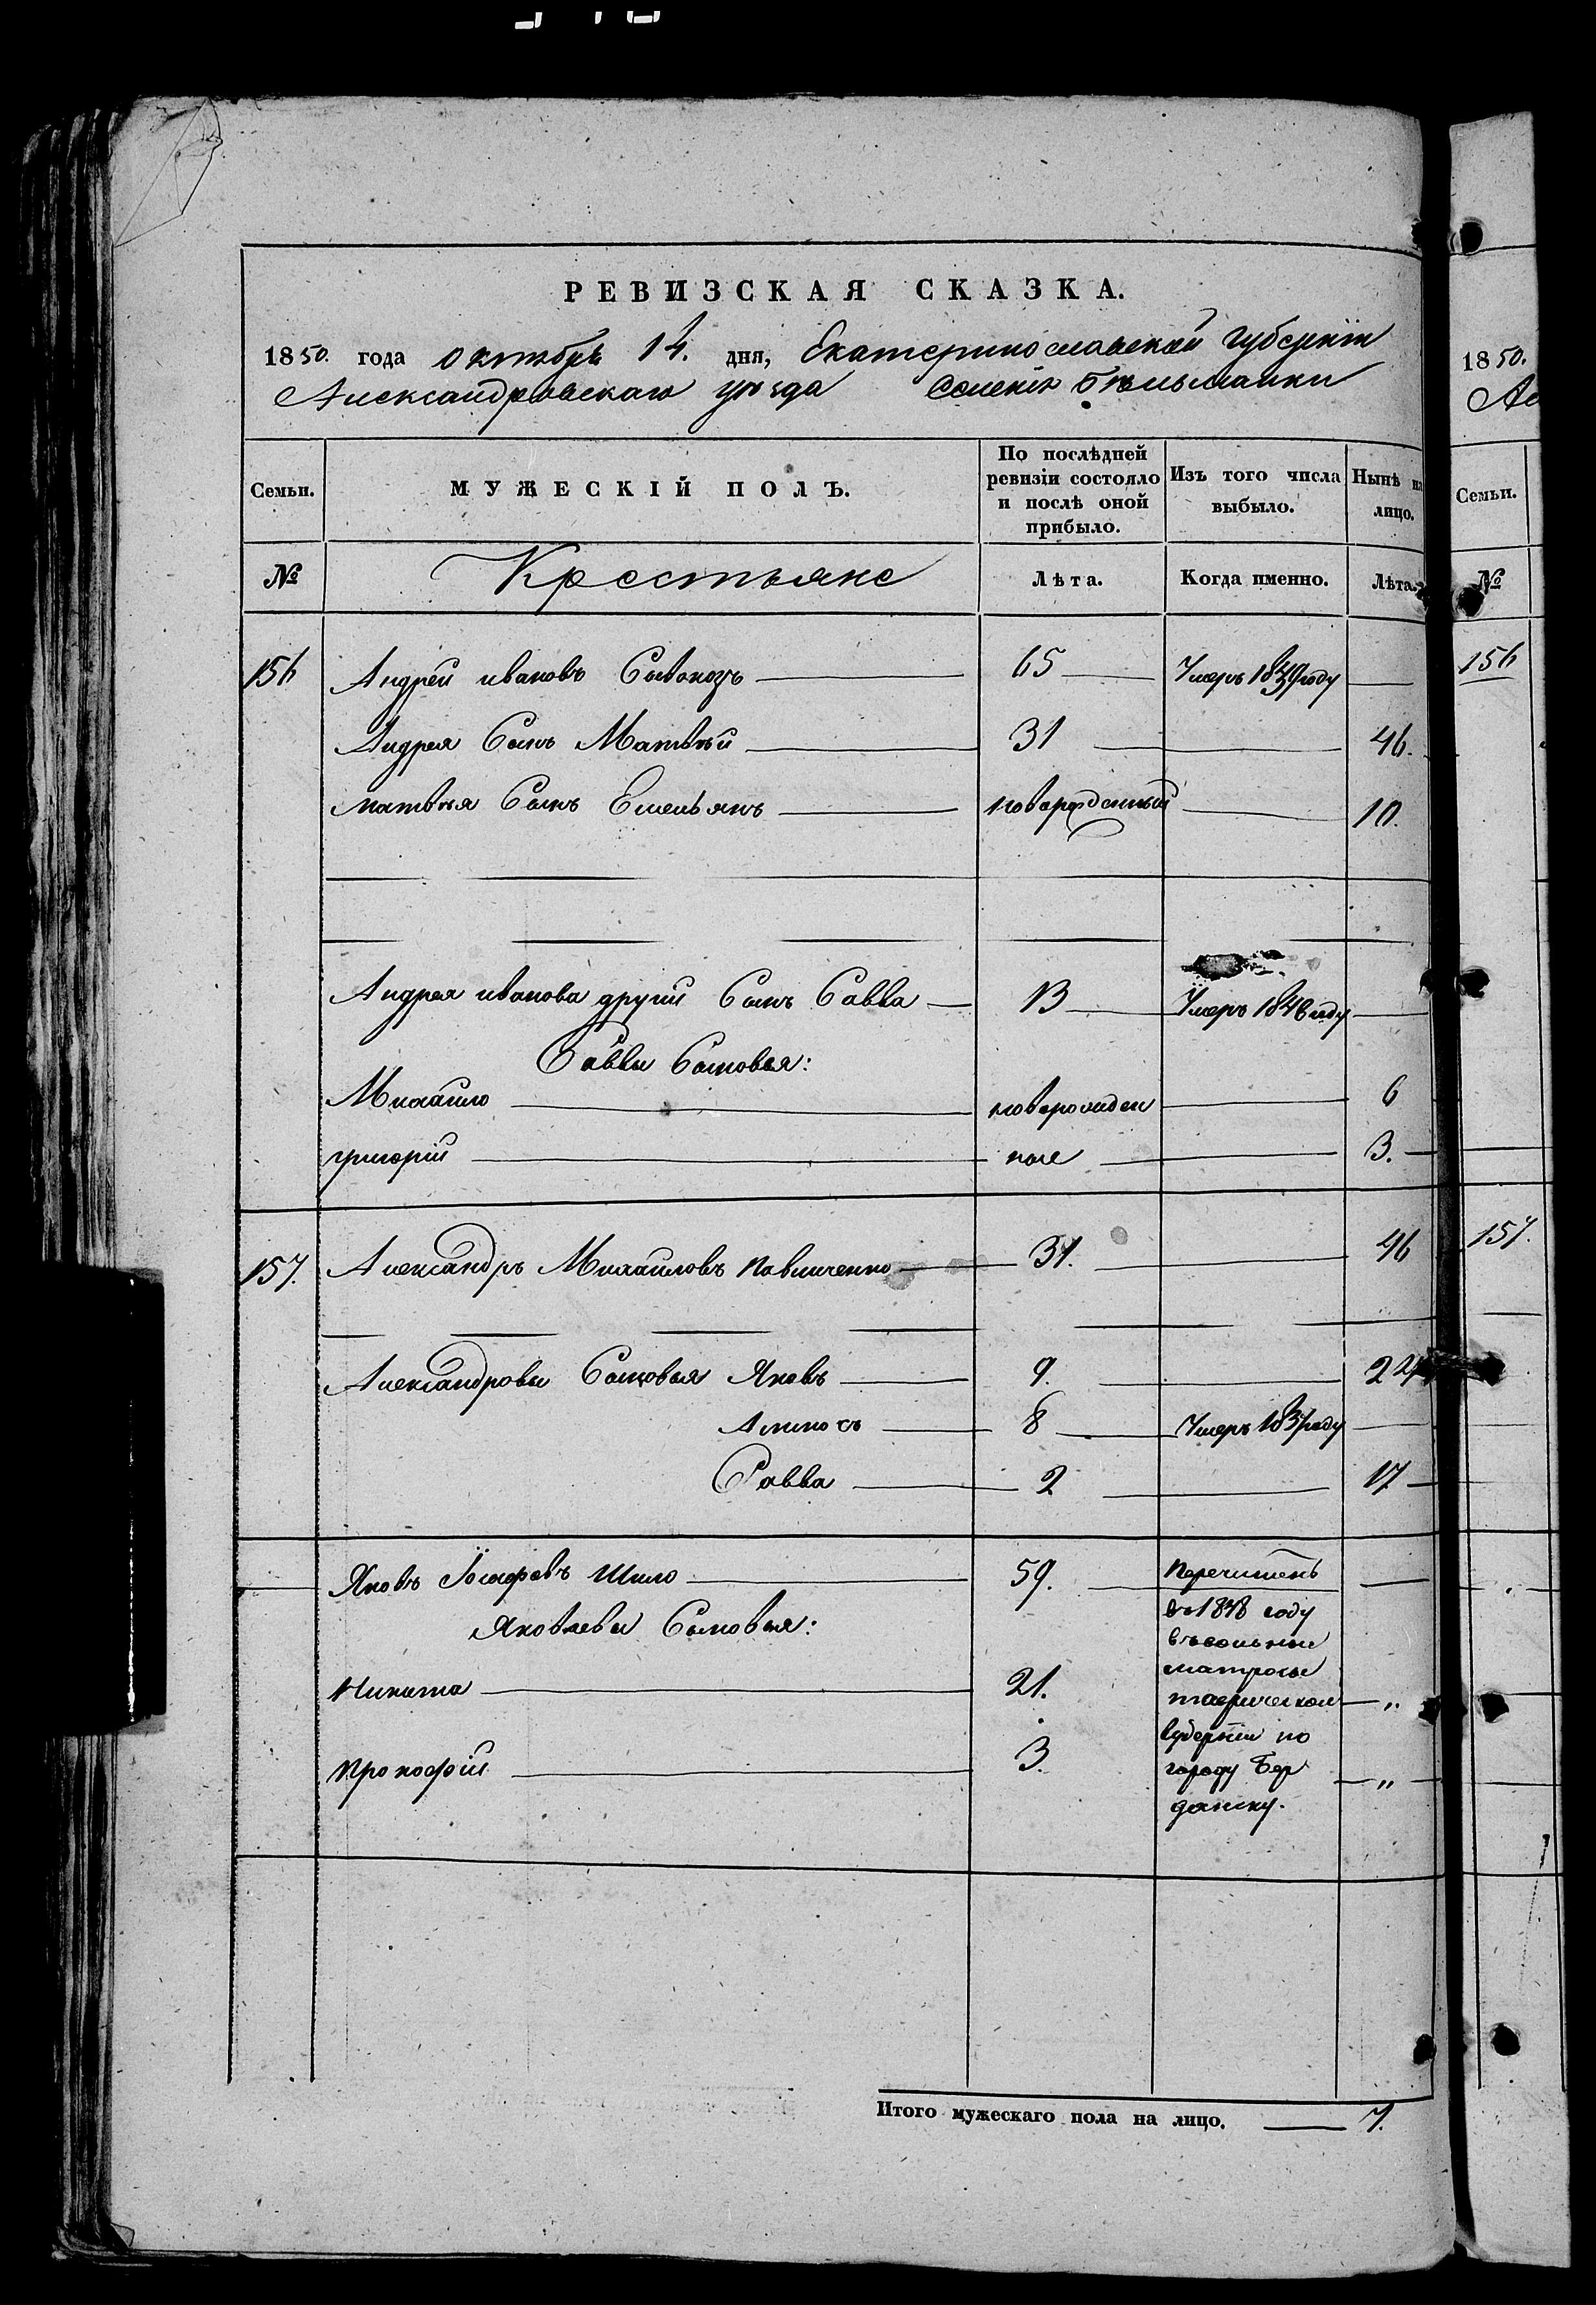 РЕВИЗСКАЯ СКАЗКА.
1850. года октября 14. дня, Екатеринославской губерніи
Александровскаго уѣзда Селенія Бѣльманки
Семьи. МУЖЕСКІЙ ПОЛЪ. По послѣдней ревизіи состояло и послѣ оной прибыло. Изъ того числа выбыло. Нынѣ на лицо.
№ Крестьяне Лѣта. Когда именно. Лѣта.
156 Андрей ивановъ 65 Умеръ 1839 году
Андрея Сынъ Матвѣй 31 46.
матвѣя Сынъ Емельянъ новорожденный 10.
Андрея иванова другий Сынъ Савва 13 Умеръ 1848 году
Саввы Сыновья:
Михайло новорожден 6
григорій ные 3.
157. Александръ Михайловъ Павличенко 31. 46
Александровы Сыновья Яковъ 9. 24
8 Умеръ 1837 году
Савва 2 17
Яковъ Шило 59. Перечисленъ
Яковлевы Сыновья: въ 1848 году
въ вольные
матросы
Никита 21. таврической "
губерніи по
Прокофій 3. городу Бер "
дянску.
Итого мужескаго пола на лицо. 7.
1850.
Ал
Семьи.
№
156
157.